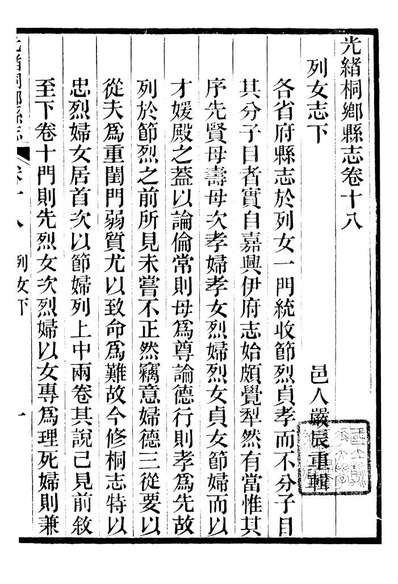 光緒桐鄉縣志卷十八
列女志下
邑人嚴辰重輯
各省府縣志於列女一門統收節烈貞孝而不分子目
其分子目者實自嘉興伊府志始頗覺犁然有當惟其
序先賢母壽母次孝婦孝女烈婦烈女貞女節婦而以
才媛殿之蓋以論倫常則母為尊論德行則孝為先故
列於節烈之前所見未嘗不正然竊意婦德三從要以
從夫為重閨門弱質尤以致命為難故今修桐志特以
忠烈婦女居首次以節婦列上中兩卷其說已見前敘
至下卷十門則先烈女次烈婦以女專為理死婦則兼
光緒桐鄉縣志
卷十八
列女下
一